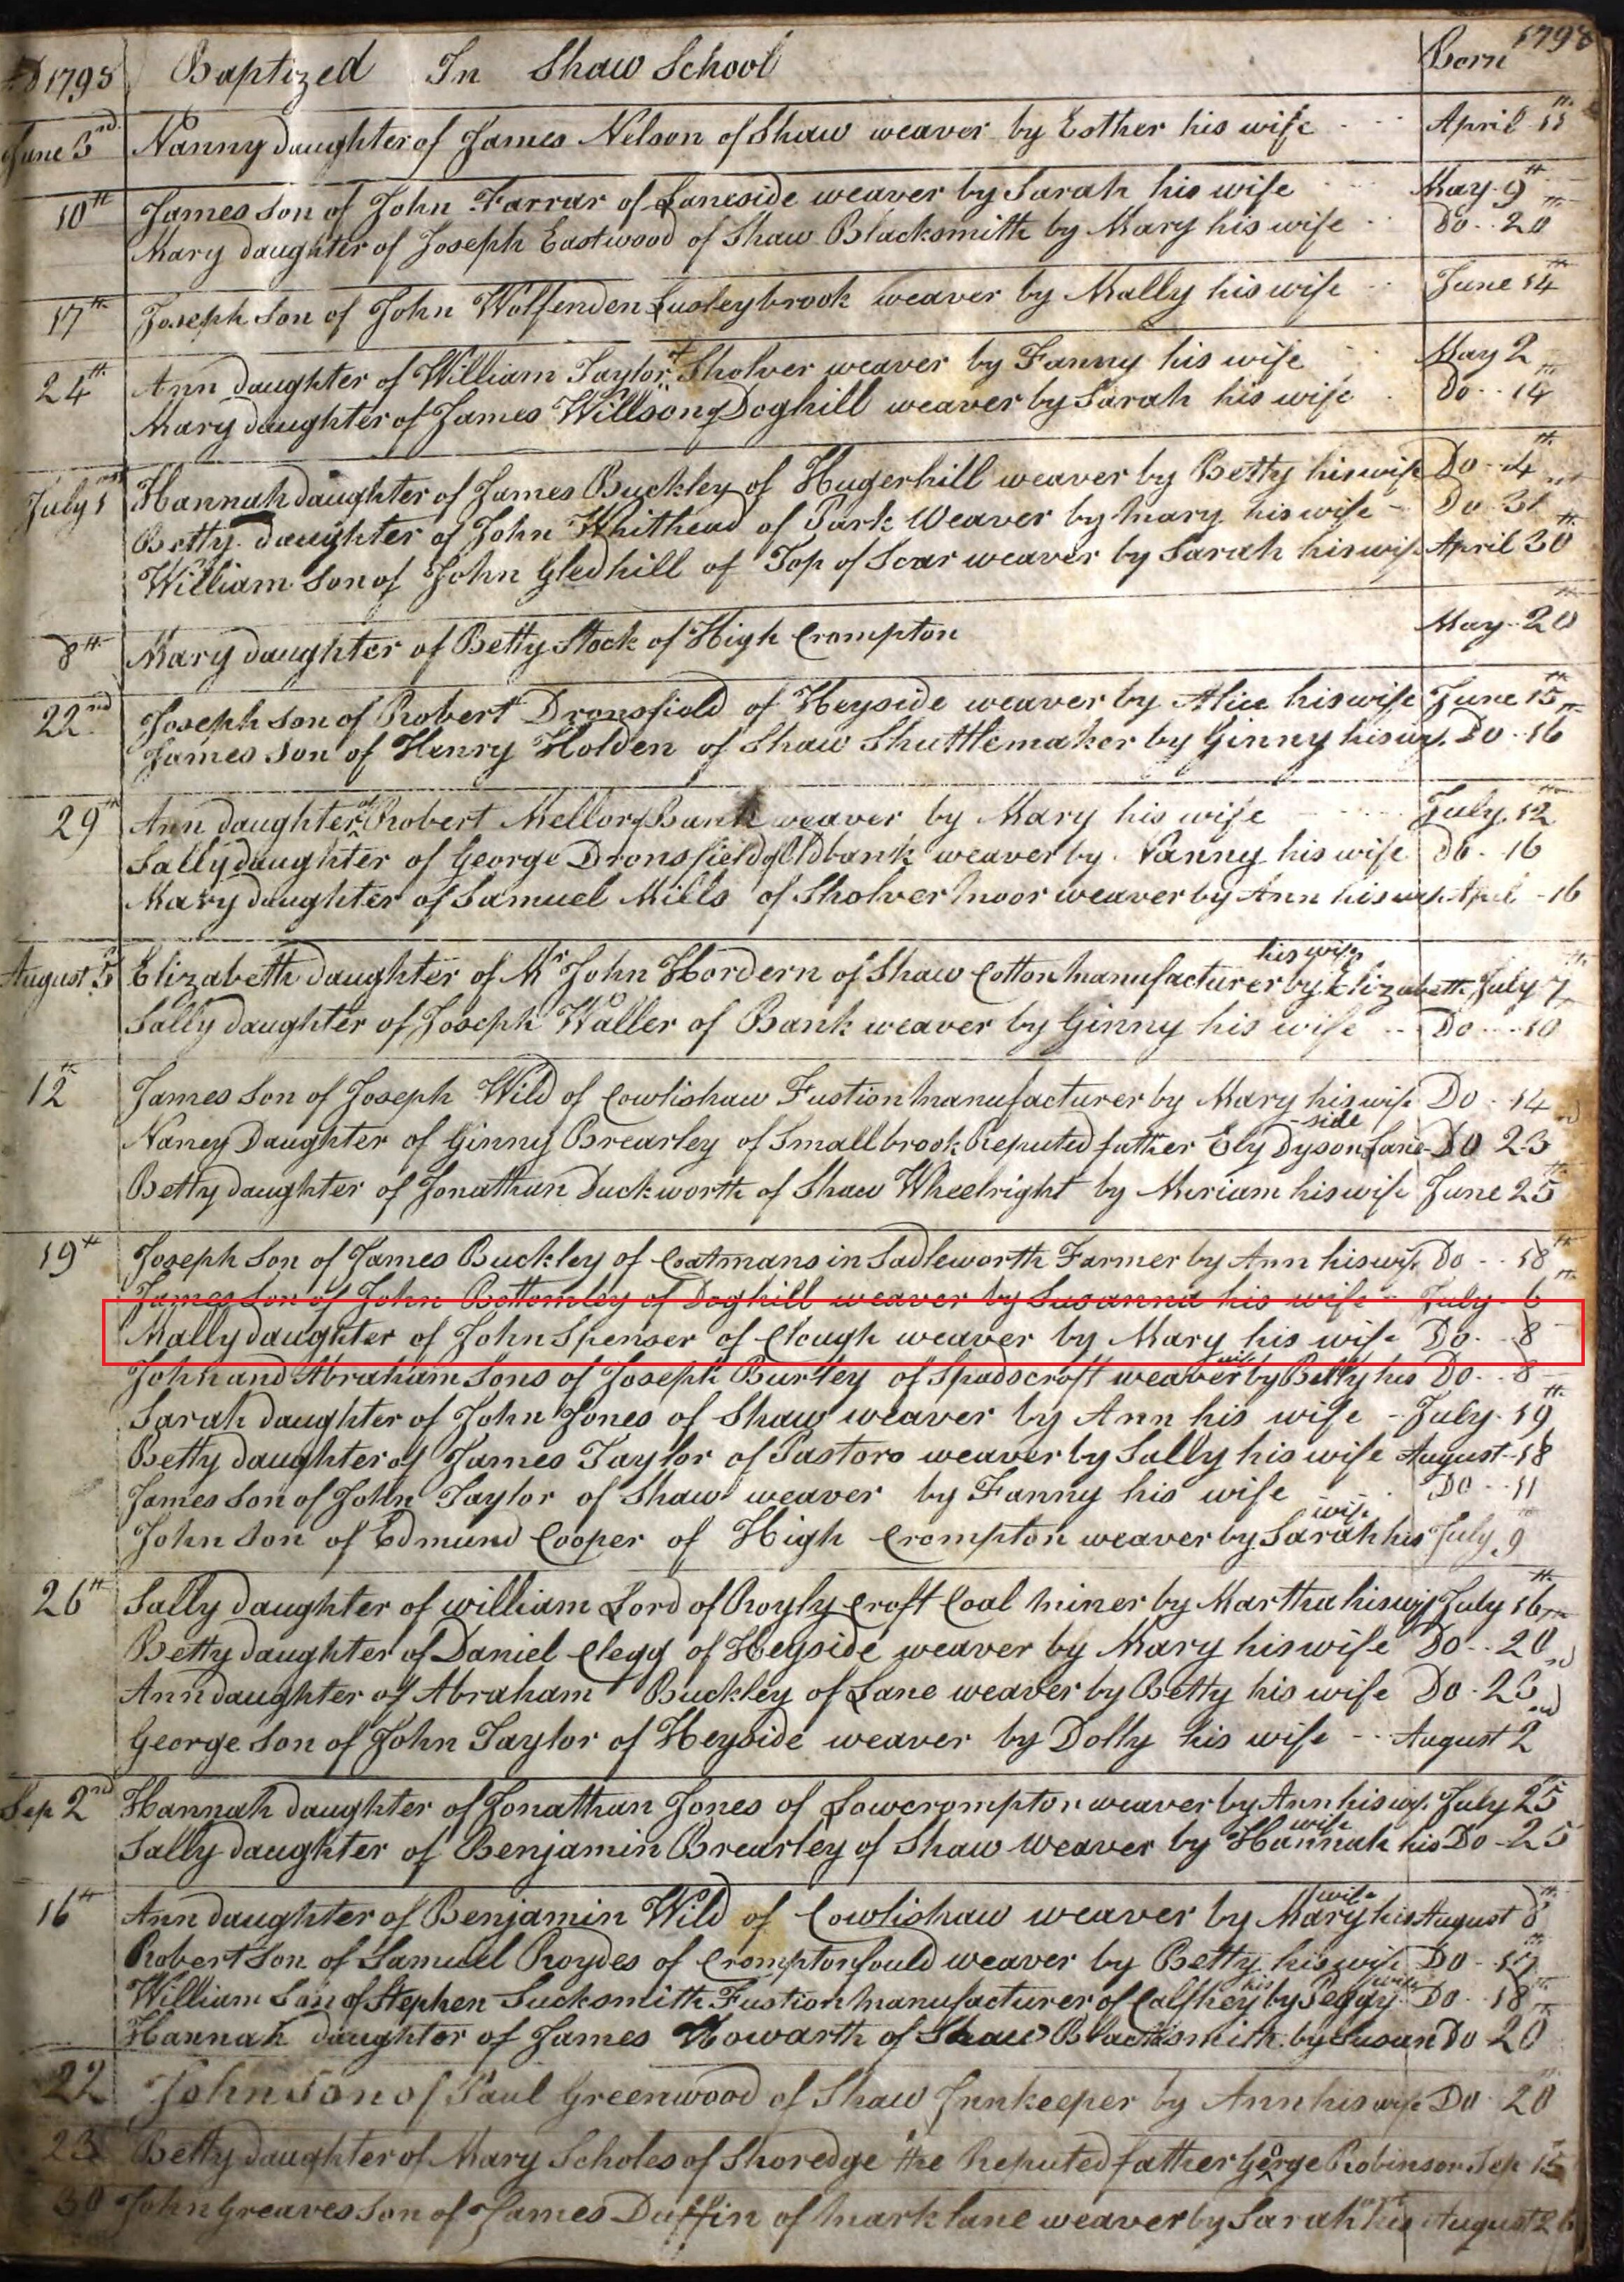 1798
1798 Baptized In Shaw School Born
June 3rd Nanny daughter of James Nelson of Shaw weaver by Esther his wife April 11th
10th James Son of John Farrar of Laneside weaver by Sarah his wife May 9th
Mary daughter of Joseph Eastwood of Shaw Blacksmith by Mary his wife Do 20th
17th Joseph Son of John Wolfenden Lusleybrook weaver by Mally his wife June 14th
24th Ann daughter of William Taylor of Sholver weaver by Fanny his wife May 2
Mary daughter of James Willson of Doghill weaver by Sarah his wife Do 14th
July 1st Hannah daughter of James Buckley of Hugerhill weaver by Betty his wife Do 4th
Betty daughter of John Whithead of Park Weaver by Mary his wife Do 31st
William Son of John Gledhill of Top of Scar weaver by Sarah his wife April 30th
8th Mary daughter of Betty Stock of High Crompton May 20th
22nd Joseph Son of Robert Dronsfield of Heyside weaver by Alice his wife June 15th
James Son of Henry Holden of Shaw Shuttlemaker by Ginny his wif. Do 16th
29th Ann daughter of Robert Mellor of Bank weaver by Mary his wife July 12th
Sally daughter of George Dronsfield of Oldbank weaver by Nanny his wife Do 16
Mary daughter of Samuel Mills of Sholver moor weaver by Ann his wife April 16
his wife
August 5 Elizabeth daughter of Mr John Hordern of Shaw Cotton Manufacturer by Elizabeth July 7th
Sally daughter of Joseph Waller of Bank weaver by Ginny his wife Do 10
12th James Son of Joseph Wild of Cowlishaw Fustion Manufacturer by Mary his wife Do 14
side
Nancy Daughter of Ginny Brearley of Smallbrook Reputed father Ely Dyson Lane Do 23rd
Betty daughter of Jonathan Duckworth of Shaw Wheelright by Miriam his wife June 25th
19th Joseph Son of James Buckley of Coatmans in Sadleworth Farmer by Ann his wife Do 18th
James Son of John Bottomley of Doghill weaver by Susanna his wife July 6th
Mally daughter of John Spenser of Clough weaver by Mary his wife Do 8
wife
John and Abraham Sons of Joseph Burtley of Spadscroft weaver by Betty his Do 8
Sarah daughter of John Jones of Shaw weaver by Ann his wife July 19th
Betty daughter of James Taylor of Pastors weaver by Sally his wife August 18
James Son of John Taylor of Shaw weaver by Fanny his wife Do 11
wife
John Son of Edmund Cooper of High Crompton weaver by Sarah his July 9
26th Sally daughter of william Lord of Royly Croft Coal miner by Martha his wife July 16th
Betty daughter of Daniel Clegg of Heyside weaver by Mary his wife Do 20th
Ann daughter of Abraham Buckley of Lane weaver by Betty his wife Do 23rd
George Son of John Taylor of Heyside weaver by Dolly his wife August 2nd
Sep 2nd Hannah daughter of Jonathan Jones of Lowcrompton weaver by Ann his wif. July 25th
wife
Sally daughter of Benjamin Brearley of Shaw weaver by Hannah his Do 25
wife
16th Ann daughter of Benjamin Wild of Cowlishaw weaver by Mary his August 8th
Robert Son of Samuel Roydes of Cromptonfould weaver by Betty his wife Do 17th
his wife
William Son of Stephen Sucksmith Fustion Manufacturer of Calfhey by Peggy Do 18th
Hannah daughter of James Howarth of Shaw Blacksmith by Susan Do 20th
22 John Son of Paul Greenwood of Shaw Innkeeper by Ann his wife Do 20
23 Betty daughter of Mary Scholes of Shoredge the Reputed father George Robinson Sep 15
30 John Greaves Son of James Duffin of Mark lane weaver by Sarah his August 26